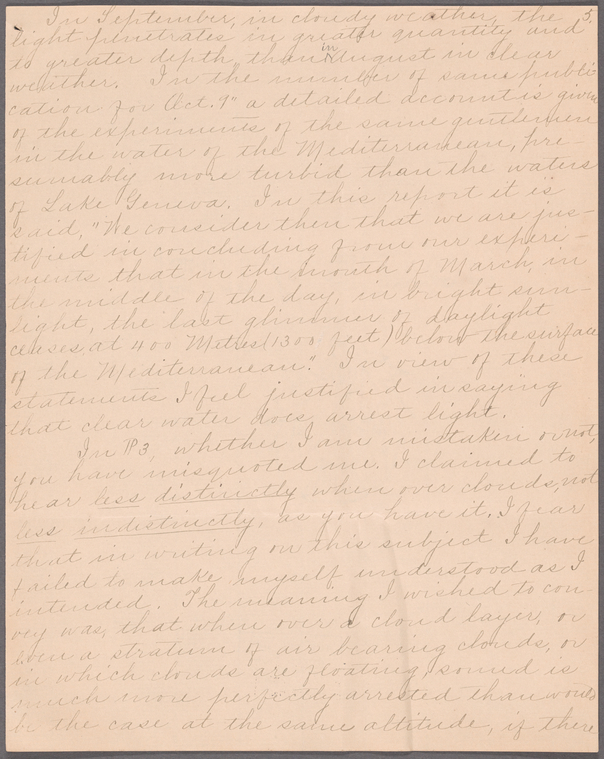 5.
In September, in cloudy weather, the
light penetrates in greater quantity and
to greater depth than in August in clear
weather. In the number of same publi-
cation for Oct. 9" a detailed account is given
of the experiments of the same gentlemen
in the water of the Mediterranean, pre-
sumably more turbid than the waters
of Lake Geneva. In this report it is
said, "We consider then that we are jus-
tified in concluding from our experi-
ments that in the month of March, in
the middle of the day, in bright sun-
light, the last glimmer of daylight
ceases, at 400 Metres (1300 feet) below the surface
of the Mediterranean." In view of these
statements I feel justified in saying
that clear water does arrest light.
In ¶3, whether I am mistaken or not,
you have misquoted me. I claimed to
hear less distinctly when over clouds, not
less indistinctly, as you have it. I fear
that in writing on this subject I have
failed to make myself understood as I
intended. The meaning I wished to con-
vey was, that when over a cloud layer, or
even a stratum of air bearing clouds, or
in which clouds are floating, sound is
much more perfectly arrested than would
be the case at the same altitude, if there